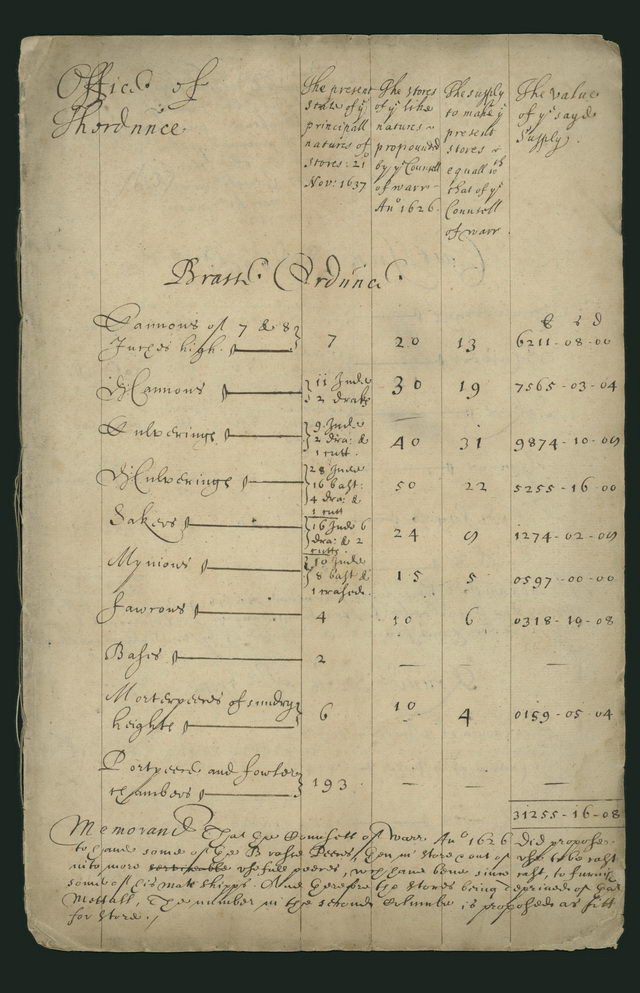 Office of
Thordnnce
The present
state of yͤ
principall
natures of
stores: 21º
Nov: 1637
The stores
of yͤ like
natures
propounded
by yͤ Counsell
of warr
Anº 1626.
The supply
to make yͤ
present
stores
equall wᵗʰ
that of yͤ
Counsell
of warr
The value
of yͤ sayd
Supply.
Brasse Ordnnce.
li s d
Cannons of 7 & 8
Inches high. 7 20 13 6211-08-00
Di Cannons 11 Inde 2 drake 30 19 7565-03-04
Culverings 9 Inde 2 dra: & 1 cutt. 40 31 9874-10-09
Di Culverings 28 Inde 16 bast: 4 dra: & 1 cutt 50 22 5255-16-00
Sakers 16 Inde 6 dra: & 2 cutts. 24 9 1274-02-09
Mynions 10 Inde 8 bast & 1 crased. 15 5 0597-00-00
Fawcons 4 10 6 0318-19-08
Bases 2 — — —
Morterpeeces of sundry
heights 6 10 4 0159-05-04
Portpeece and fowler
chambers 193 — — —
31255-16-08
Memorand That the Counsell of Warr Anº 1626 did propose
to have some of the Brasse Peeces, then in store out of to be cast
into more serviceable usefull peeces, wᶜʰ have bene since cast, to furnish
some of his Maᵗˢ shipps. And therefore the stores being deprived of that
Mettall, The number in the second Columbe is proposed as fitt
for store.